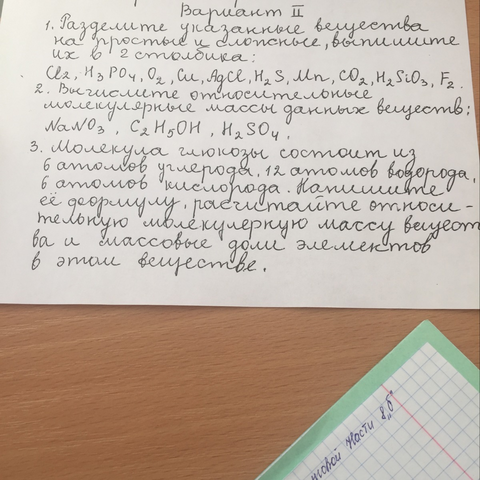 Вариант II
1. Разделите указанные вещества
на простые и сложные, выпишите
их в 2 столбика:
Cl2, H3PO4, O2, Cu, AgCl, H2S, Mn, CO2, H2SiO3, F2.
2. Вычислите относительные
молекулярные массы данных веществ:
NaNO3, C2H5OH, H2SO4.
3. Молекула глюкозы состоит из
6 атомов углерода, 12 атомов водорода,
6 атомов кислорода. Напишите
её формулу, расчитайте относи-
тельную молекулярную массу вещест
ва и массовые доли элементов
в этом веществе.
насти 8 „б"